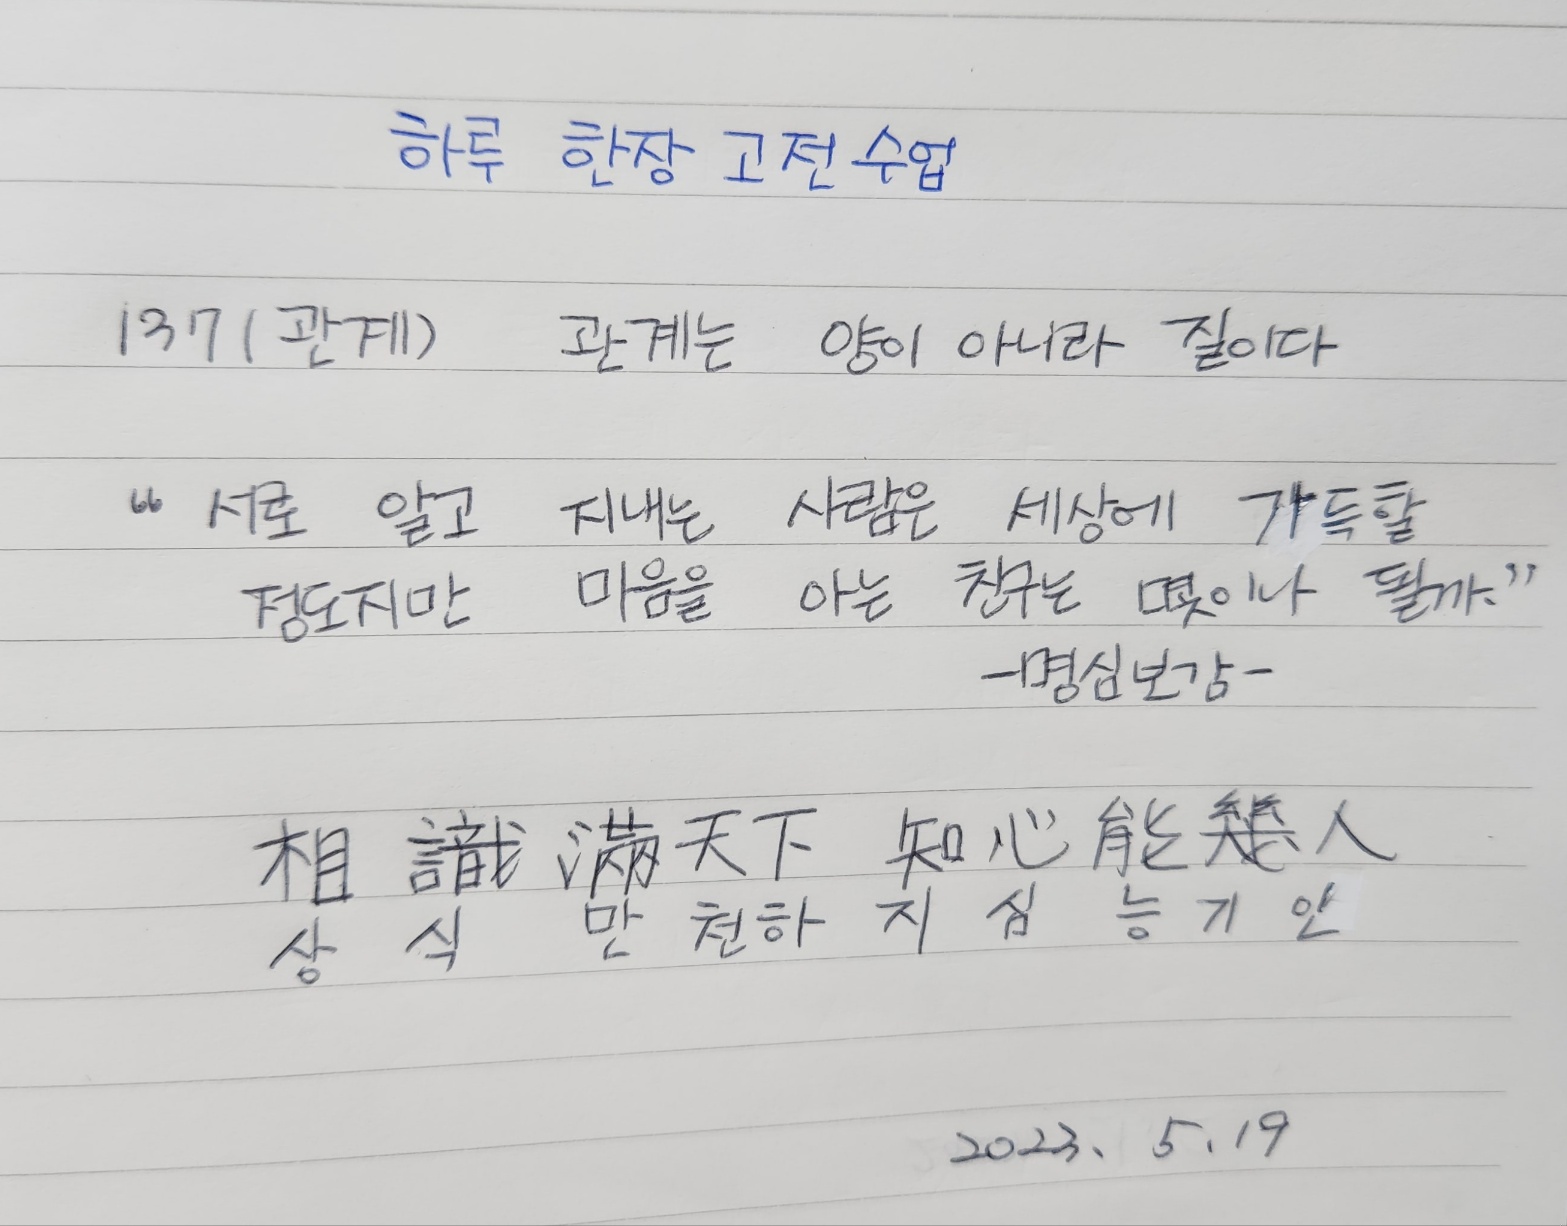 하루 한장 고전 수업
137(관계) 관계는 양이 아니라 질이다
“서로 알고 지내는 사람은 세상에 가득할
정도지만 마음을 아는 친구는 몇이나 될까.”
-명심보감-
相識滿天下 知心能幾人
상식만천하 지심능기인
2023. 5. 19